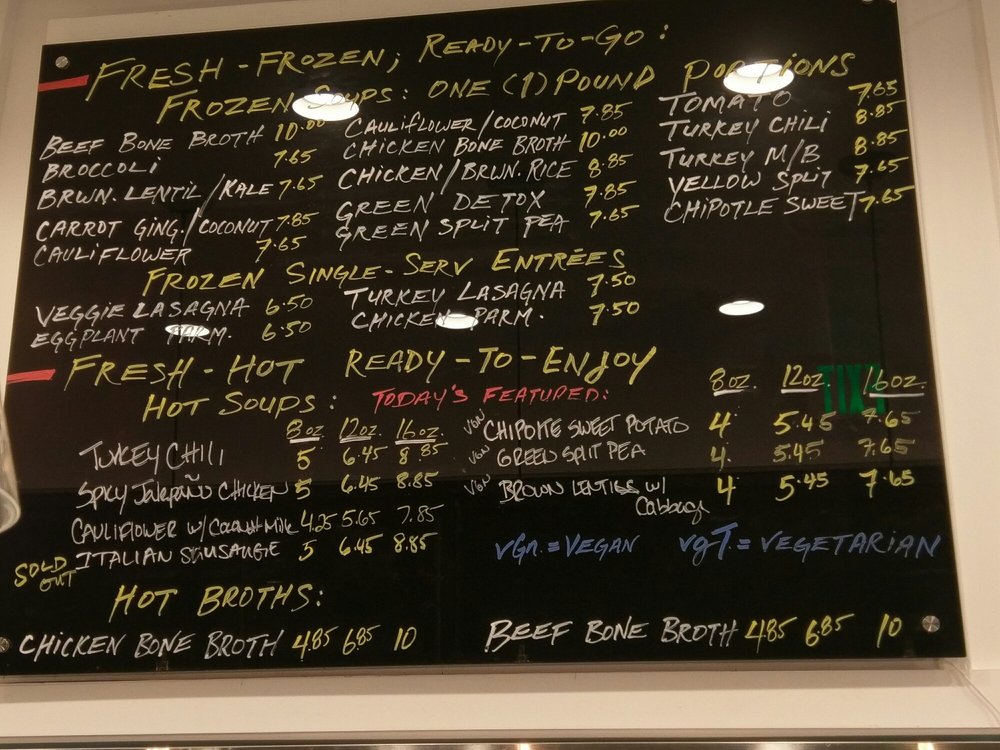 FRESH-FROZEN; READY-TO-GO:
FROZEN SOUPS: ONE (1) POUND PORTIONS
BEEF BONE BROTH 10.00
BROCCOLI 7.65
BRWN. LENTIL/KALE 7.65
CARROT GING./COCONUT 7.85
CAULIFLOWER 7.65
CAULIFLOWER/COCONUT 7.85
CHICKEN BONE BROTH 10.00
CHICKEN/BRWN. RICE 8.85
GREEN DETOX 7.85
GREEN SPLIT PEA 7.65
TOMATO 7.65
TURKEY CHILI 8.85
TURKEY M/B 8.85
YELLOW SPLIT 7.65
CHIPOTLE SWEET 7.65
FROZEN SINGLE-SERV ENTRÉES
VEGGIE LASAGNA 6.50
EGGPLANT PARM. 6.50
TURKEY LASAGNA 7.50
CHICKEN PARM. 7.50
FRESH-HOT READY-TO-ENJOY
HOT SOUPS: TODAY'S FEATURED:
8oz. 12oz. 16oz.
TURKEY CHILI 5 6.45 8.85
SPICY JALEPAÑO CHICKEN 5 6.45 8.85
CAULIFLOWER W/COCONUT MILK 4.25 5.65 7.85
SOLD OUT ITALIAN SAUSAUGE 5 6.45 8.85
8oz. 12oz. 16oz.
VGN CHIPOLTE SWEET POTATO 4 5.45 7.65
VGN GREEN SPLIT PEA 4. 5.45 7.65
VGN BROWN LENTILS W/ 4 5.45 7.65
Cabbage
VGn. = VEGAN VgT. = VEGETARIAN
HOT BROTHS:
CHICKEN BONE BROTH 4.85 6.85 10
BEEF BONE BROTH 4.85 6.85 10